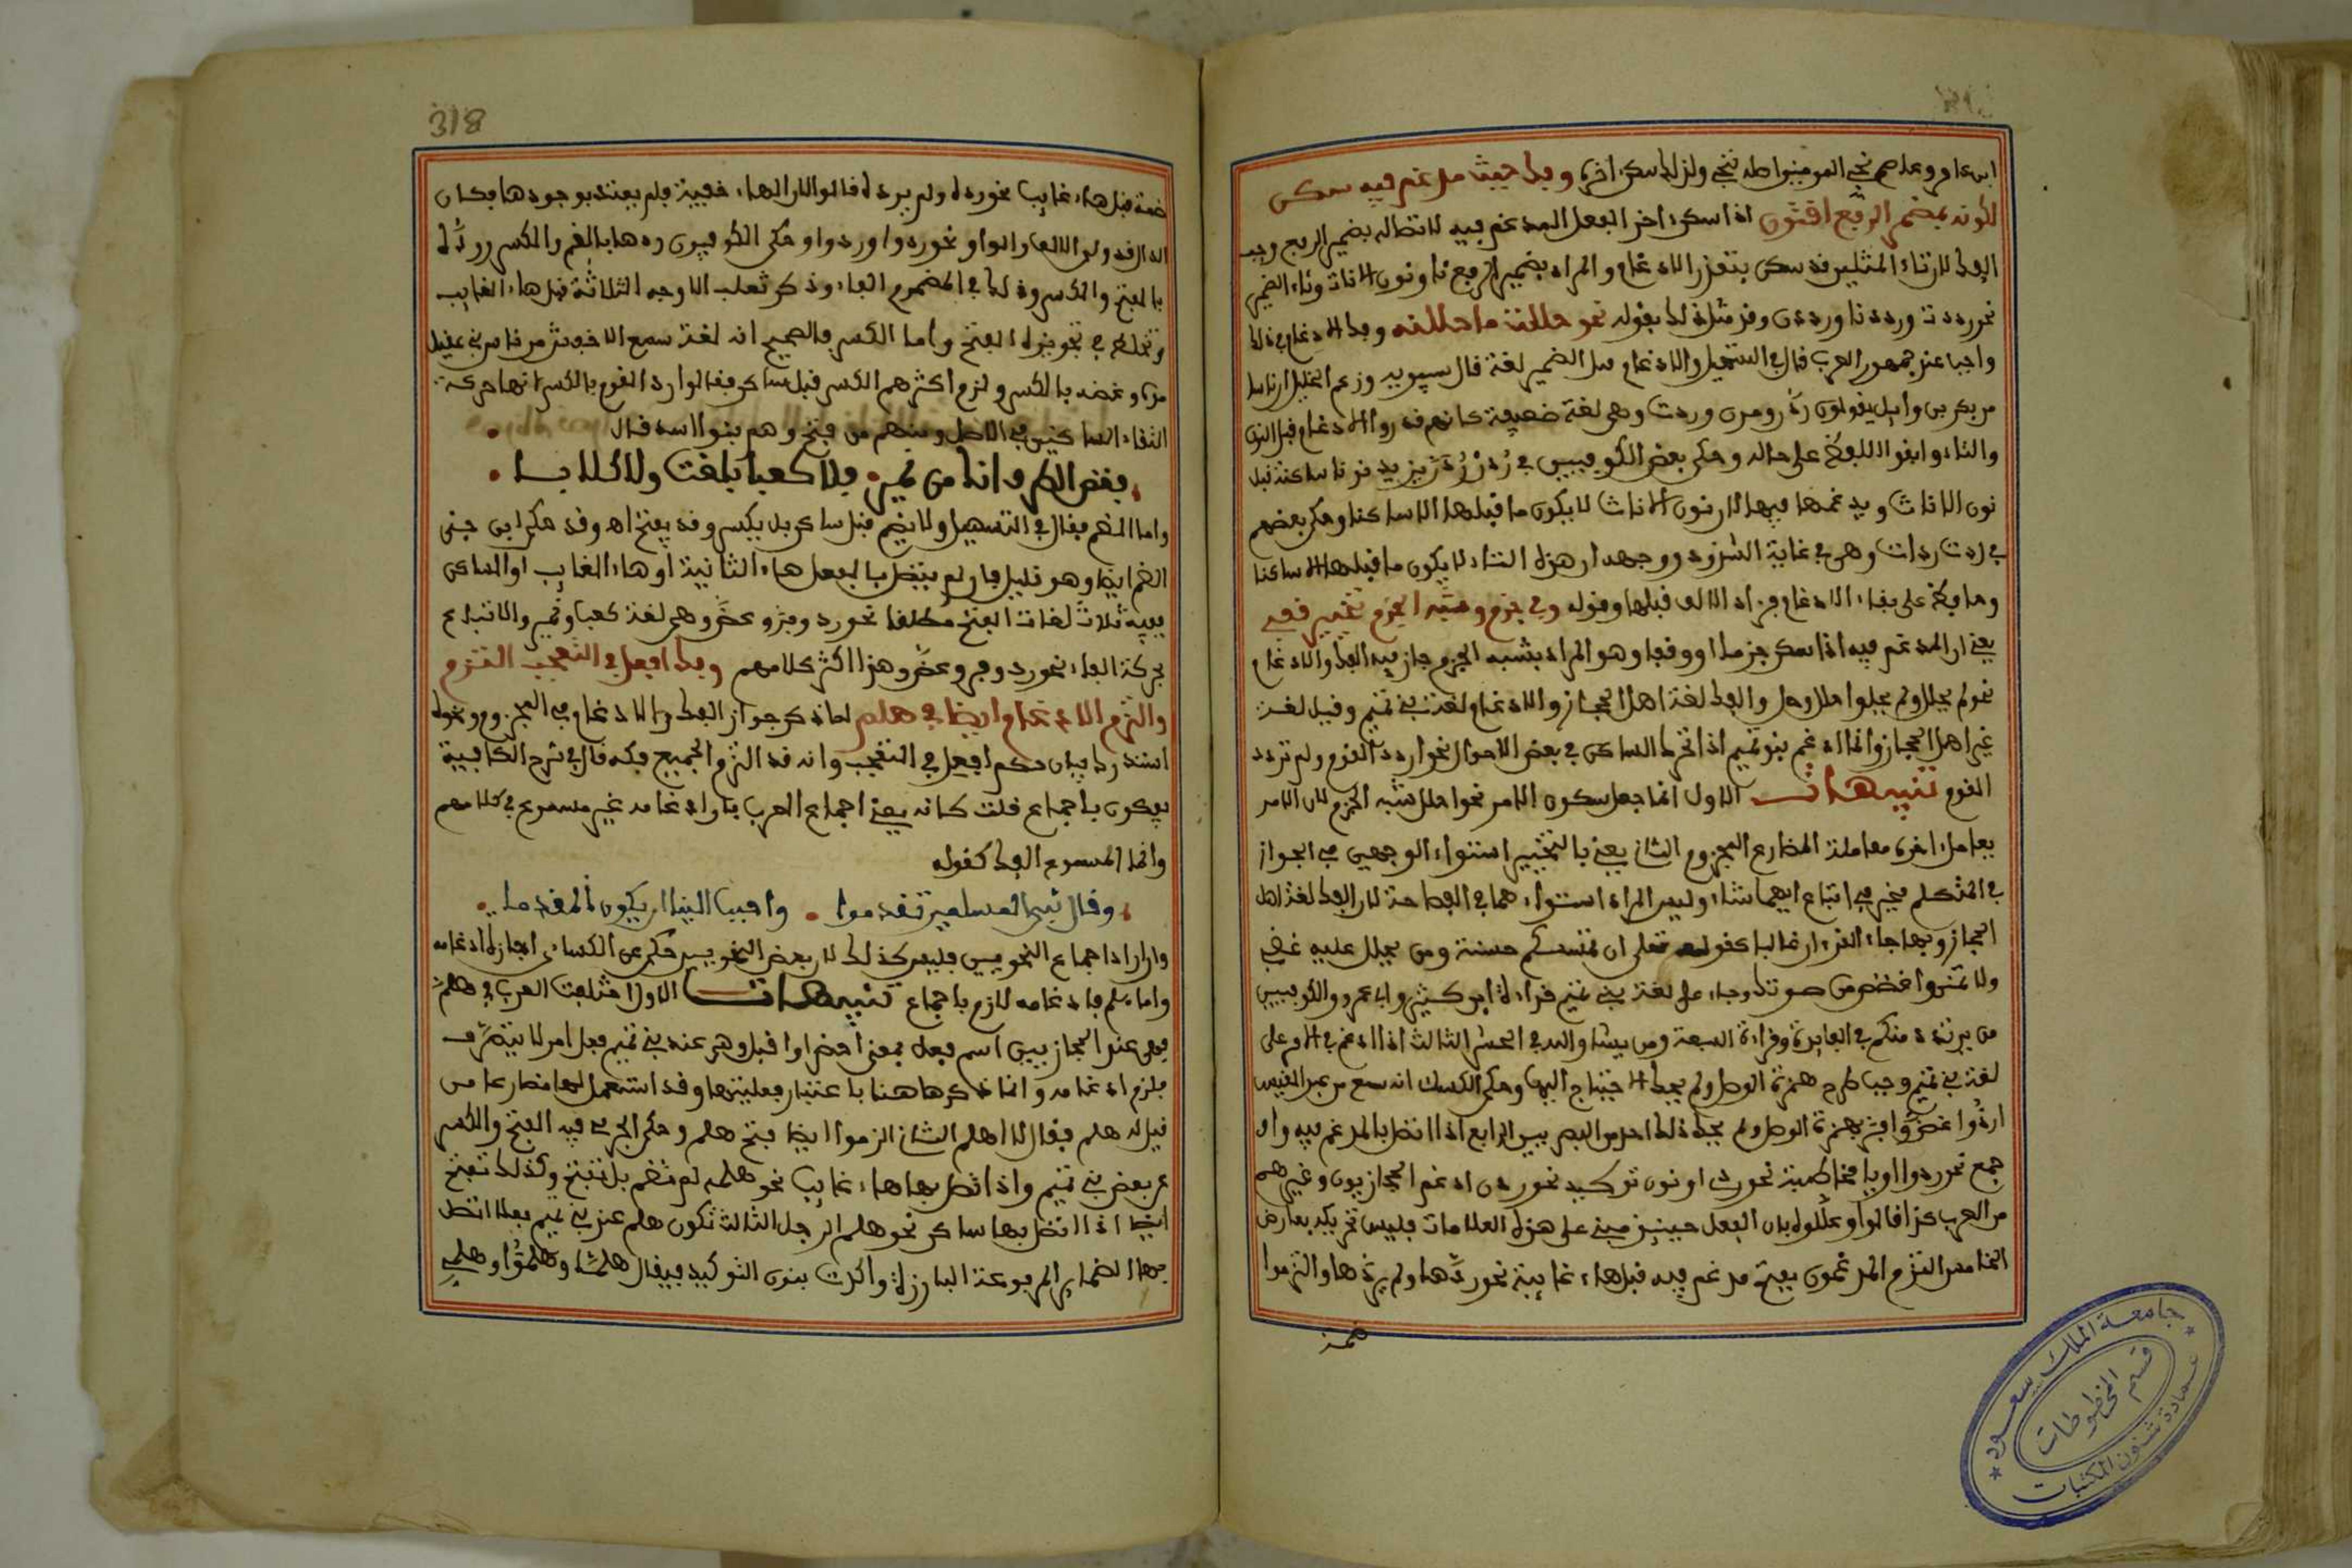 ابن عامر وعاصم نجي المومنين اصله ننجي ولذلك سكن اخره وفك حيث مدغم فيه سكن
لكونه بمضمر الرفع اقترن اذا سكن اخر الفعل المدغم فيه لاتصاله بضمير الرفع وجب
الفك لان ثاء المثلين قد سكن بتعذر الادغام والمراد بضمير الرفع نا ونون الاناث وتاء الضمير
نحو رددت ورددنا ورددن وقد مثل ذلك بقوله نحو حللت ما حللنه وفك الادغام في ذلك
واجب عند جمهور العرب قال في التسهيل والادغام قبل الضمير لغة قال سيبويه وزعم الخليل ان ناسا
من بكر بن وايل يقولون ردنا ومرن وردت وهي لغة ضعيفة كانهم قدروا الادغام قبل النون
والتاء وابقوا اللفظ على حاله وحكى بعض الكوفيين في ردن ردن يزيد نونا ساكنة قبل
نون الاناث ويدغمها فيها لان نون الاناث لا يكون ما قبلها الا ساكنا وحكى بعضهم
في ردت ردات وهي في غاية الشذوذ ووجهه ان هذه التاء لا يكون ما قبلها الا ساكنا
وحافظ على بقاء الادغام فزاد الالف قبلها وقوله وفي جزم وشبه الجزم تخيير قفي
يعني ان المدغم فيه اذا سكن جزما او وقفا وهو المراد بشبه الجزم جاز فيه الفك والادغام
نحو لم يحلل ولم يحل واحلل وحل والفك لغة اهل الحجاز والادغام لغة بني تميم وقيل لغة
غير اهل الحجاز وانما ادغم بنو تميم اذا تحرك الساكن في بعض الاحوال نحو اردد القوم ولم تردد
القوم تنبيهات الاول انما جعل سكون الامر نحو احلل شبه الجزم لان الامر
يعامل اخره معاملة المضارع المجزوم الثاني يعني بالتخيير استواء الوجهين في الجواز
في المتكلم مخير في اتباع ايهما شاء وليس المراد استواءهما في الفصاحة لان الفك لغة اهل
الحجاز وبها جاء القرءان غالبا كقوله تعلى ان تمسسكم حسنة ومن يحلل عليه غضبي
ولا تمنن واغضض من صوتك وجاء على لغة بني تميم قراءة ابن كثير وابي عمرو والكوفيين
من يرتد منكم في المايدة وقراءة السبعة ومن يشاق الله في الحشر الثالث اذا ادغم في الامر على
لغة بني تميم وجب طرح همزة الوصل لعدم الاحتياج اليها وحكى الكسائي انه سمع من عبد القيس
ارد واغض وافر بهمزة الوصل ولم يحك ذلك احد من البصريين الرابع اذا اتصل بالمدغم فيه واو
جمع نحو ردوا او ياء مخاطبة نحو ردي او نون توكيد نحو ردن ادغم الحجازيون وغيرهم
من العرب هكذا قالوا وعللوه بان الفعل حينيذ مبني على هذه العلامات فليس تحريكه بعارض
الخامس التزم المدغمون فتح مدغم فيه قبل هاء غايبة نحو ردها ولم يردها والتزموا
ضمة
318
ضمة قبل هاء غايب نحو رده ولم يرده قالوا لان الهاء خفية فلم يعتد بوجودها فكان
الدال قد ولي الالف او الواو نحو ردا وردوا وحكى الكوفيون ردها بالضم والكسر ورده
بالفتح والكسر وذلك في المضموم الفاء وذكر ثعلب الاوجه الثلاثة قبل هاء الغايب
وغلط في تجويزه الفتح واما الكسر فالصحيح انه لغة سمع الاخفش من ناس بني عقيل
مده وعضه بالكسر ولزم اكثرهم الكسر قبل ساكن فقالوا رد القوم بالكسر لانها حركة
التقاء الساكنين في الاصل ومنهم من فتح وهم بنو اسد قال
فغض الطرف انك من نمير فلا كعبا بلغت ولا كلابا
واما الضم فقال في التسهيل ولا يضم قبل ساكن بل يكسر وقد يفتح اه وقد حكى ابن جني
الضم ايضا وهو قليل فان لم يتصل بالفعل هاء الثانية او هاء الغايب او الساكن
ففيه ثلاث لغات الفتح مطلقا نحو رد وفر وعض وهي لغة كعب ونمير والاتباع
بحركة الفاء نحو رد وفر وعض وهذا اكثر كلامهم وفك افعل في التعجب التزم
والتزم الادغام ايضا في هلم لما ذكر جواز الفك والادغام في المجزوم ونحوه
استدرك بيان حكم افعل في التعجب وانه قد التزم الجميع فكه قال في شرح الكافية
فيكون باجماع قلت كانه يعني اجماع العرب فان ادغامه غير مسموع في كلامهم
وانما المسموع الفك كقوله
وقال نبي المسلمين تقدموا واحبب الينا ان يكون المقدما
وان اراد اجماع النحويين فليس كذلك لان بعض النحويين حكى عن الكسائي اجازة ادغامه
واما هلم فادغامه لازم باجماع تنبيهات الاول اختلفت العرب في هلم
فهي عند الحجازيين اسم فعل بمعنى احضر او اقبل وهي عند بني تميم فعل امر لا يتصرف
ملزم ادغامه وانما ذكرها هنا باعتبار فعليتها وقد استعمل لها مضارعا من
قيل له هلم فقال لا اهلم الثاني الزموا ايضا فتح هلم وحكى الجرمي فيه الفتح والكسر
عن بعض بني تميم واذا اتصل بها هاء غايب نحو هلمه لم تضم بل تفتح وكذلك تفتح
ايضا اذا اتصل بها ساكن نحو هلم الرجل الثالث تكون هلم عند بني تميم فعلا اتصل
بها الضماير المرفوعة البارزة واكدت بنون التوكيد فيقال هلما وهلموا وهلمي
جامعة الملك سعود
قسم المخطوطات
عمادة شئون المكتبات